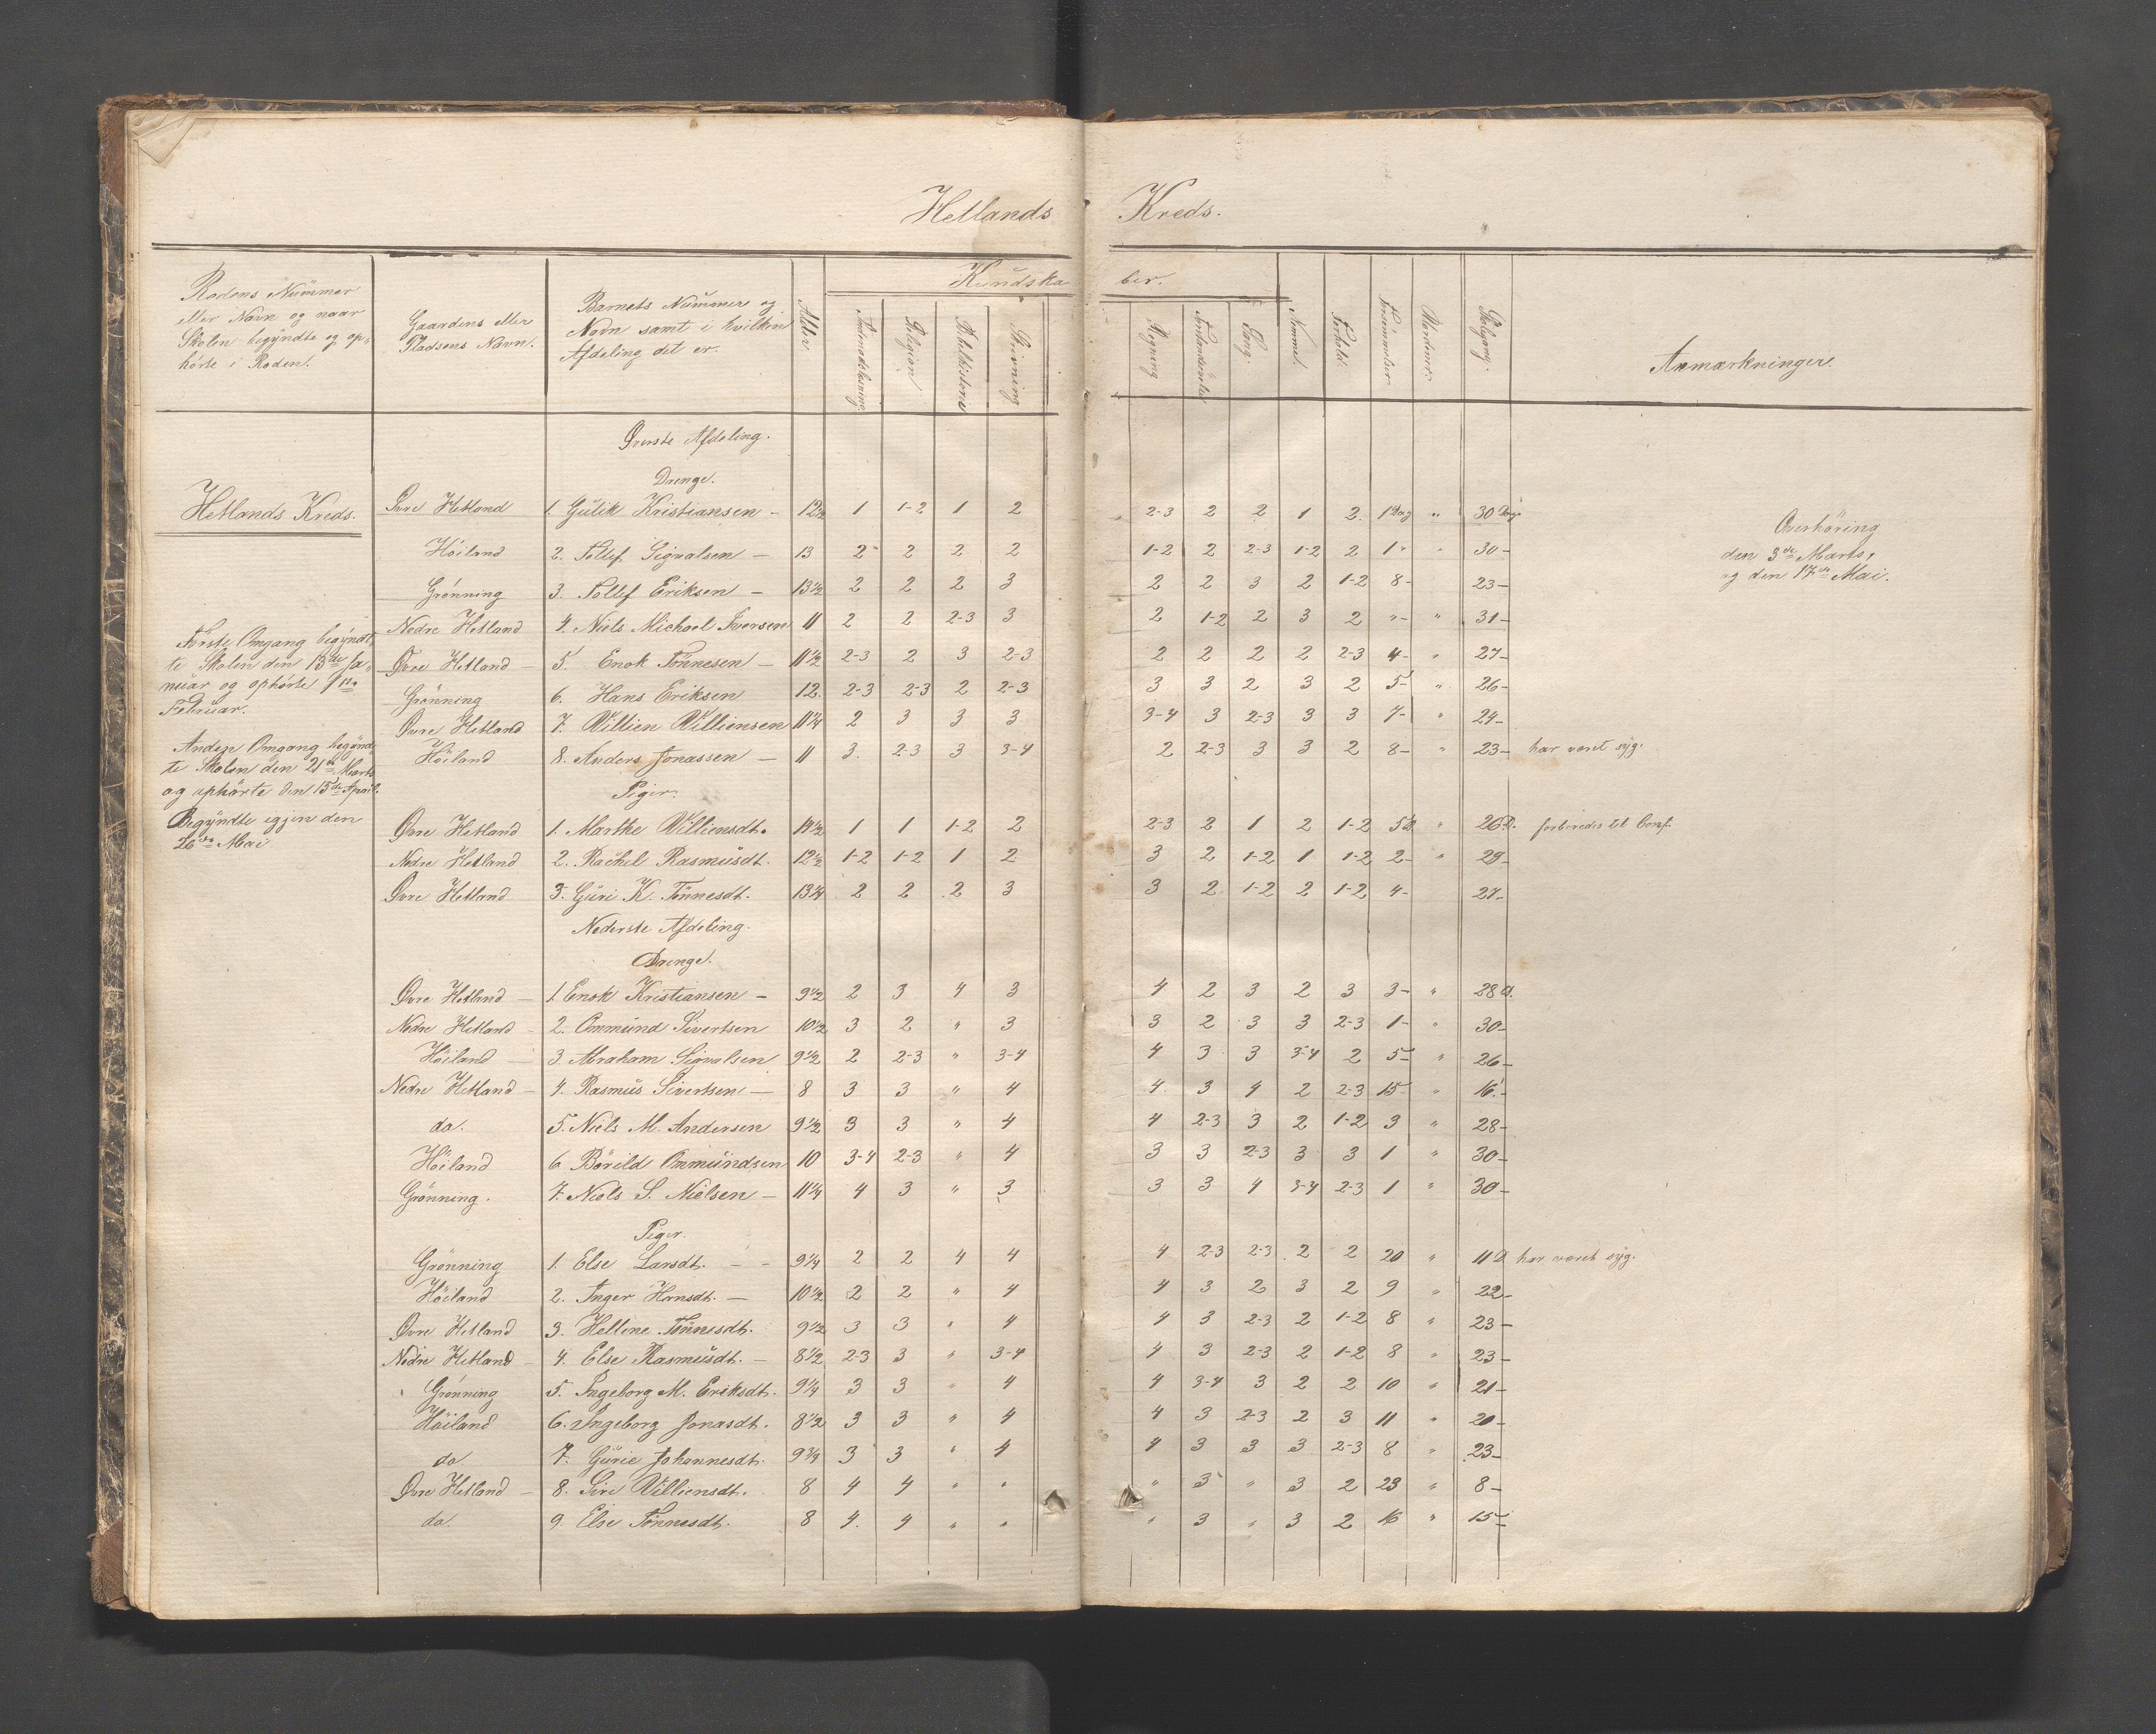 Hetlands Kreds.
Rodens Nummer
eller Navn og naar
Skolen begyndte og op-
hørte i Roden.
Gaardens eller
Pladsens Navn.
Barnets Nummer og
Navn samt i hvilken
Afdeling det er.
Alder
Kundskaber.
Indenadslæsning
Religion
Bibelhistorie
Skrivning
Regning
Sang.
Nemme.
Forhold.
Forsømmelser
Skolgang.
Anmærkninger.
Øverste Afdeling.
Drenge.
Hetlands Kreds. Øvre Hetland 1. Gulik Kristiansen - 12 1/2 1 1-2 1 2 2-3 2 2 1 2. 1 Dag " 30 Dage
Overhøring
den 3die Marts,
og den 17de Mai.
Høiland 2. Tollef Sigvalsen - 13 2 2 2 2 1-2 2 2-3 1-2 2 1 " " 30-
Grønning 3. Tollef Eriksen - 13 1/2 2 2 2 3 2 2 3 2 1-2 8- 23-
Nedre Hetland 4. Niels Michael Iversen 11 2 2 2-3 3 2 1-2 2 3 2 "- " 31-
Øvre Hetland - 5. Enok Tønnesen - 11 1/2 2-3 2 3 2-3 2 2 2 2 2-3 4- " 27-
Grønning 6. Hans Eriksen 12. 2-3 2-3 2 2-3 3 3 2 3 2 5- " 26-
Øvre Hetland 7. Willien Williensen 11 1/4 2 3 3 3 3-4 3 2-3 3 3 7- " 24-
Høiland 8. Anders Jonassen - 11 3. 2-3 3 3-4 2 2-3 3 3 2 8- " 23- har været syg.
Første Omgang begynd-
te Skolen den 13de Ja-
nuar og ophørte
Februar.
Anden Omgang begynd-
te Skolen den 21de Marts
og ophørte den 15de April.
Begyndte igjen den
26de Mai
Piger.
Øvre Hetland 1. Marthe Williensdt. 14 1/2 1 1 1-2 2 2-3 2 1 2 1-2 5 D. " 26 D. forberedes til Conf.
Nedre Hetland 2. Rachel Rasmusdt. 12 1/2 1-2 1-2 1 2 3 2 1-2 1 1-2 2- " 29-
Øvre Hetland 3. Guri K. Tønnesdt. 13 1/4 2 2 2 3 3 2 1-2 2 1-2 4- 27-
Nederste Afdeling.
Drenge.
Øvre Hetland - 1. Enok Kristiansen - 9 1/2 2 3 4 3 4 2 3 2 3 3- " 28 D.
Nedre Hetland - 2. Ommund Sivertsen 10 1/2 3 2 " 3 3 2 3 3 2-3 1- " 30-
Høiland - 3. Abraham Sigvalsen 9 1/2 2 2-3 " 3-4 4 3 3 3-4 2 5- " 26-
Nedre Hetland - 4. Rasmus Sivertsen - 8 3 3 " 4 4 3 4 2 2-3 15- " 16.-
do. 5. Niels M. Andersen 9 1/2 3 3 " 4 4 2-3 3 2 1-2 3 " 28-
Høiland 6. Bårild Ommundsen 10 3-4 2-3 " 4 3 3 2-3 3 3 1 " 30-
Grønning. 7. Niels S. Nielsen - 11 1/4 4 3 " 3 3 3 4 3-4 2-3 1 " 30-
Piger.
Grønning 1. Else Larsdt. - - 9 1/4 2 2 4 4 4 2-3 2-3 2 2 20 " 11 D har været syg.
Høiland 2. Inger Hansdt. - 10 1/2 2 2 " 4 4 3 2 3 2 9 " 22-
Øvre Hetland 3. Hellene Tønnesdt. 9 1/2 3 3 " 4 4 3 2-3 2 1-2 8 " 23-
Nedre Hetland - 4. Else Rasmusdt. - 8 1/2 2-3 3 " 3-4 4 3 2-3 2 1-2 8 " 23-
Grønning 5. Ingeborg M. Eriksdt. 9 1/4 3 3 " 4 4 3-4 3 2 2 10 " 21-
Høiland 6. Ingeborg Jonasdt. 8 1/2 3 3 " 4 4 3 2-3 2 3 11 " 20-
do. 7. Gurie Johannesdt. 9 3/4 3 3 " 4 4 3 3 3 2-3 8 " 23-
Øvre Hetland - 8. Siri Williensdt. 8 4 4 " " " 3 " 3 2 23 " 8-
do. 9. Else Tønnesdt. 8 4. 4 " " " 3 " 3 2 16 " 15-